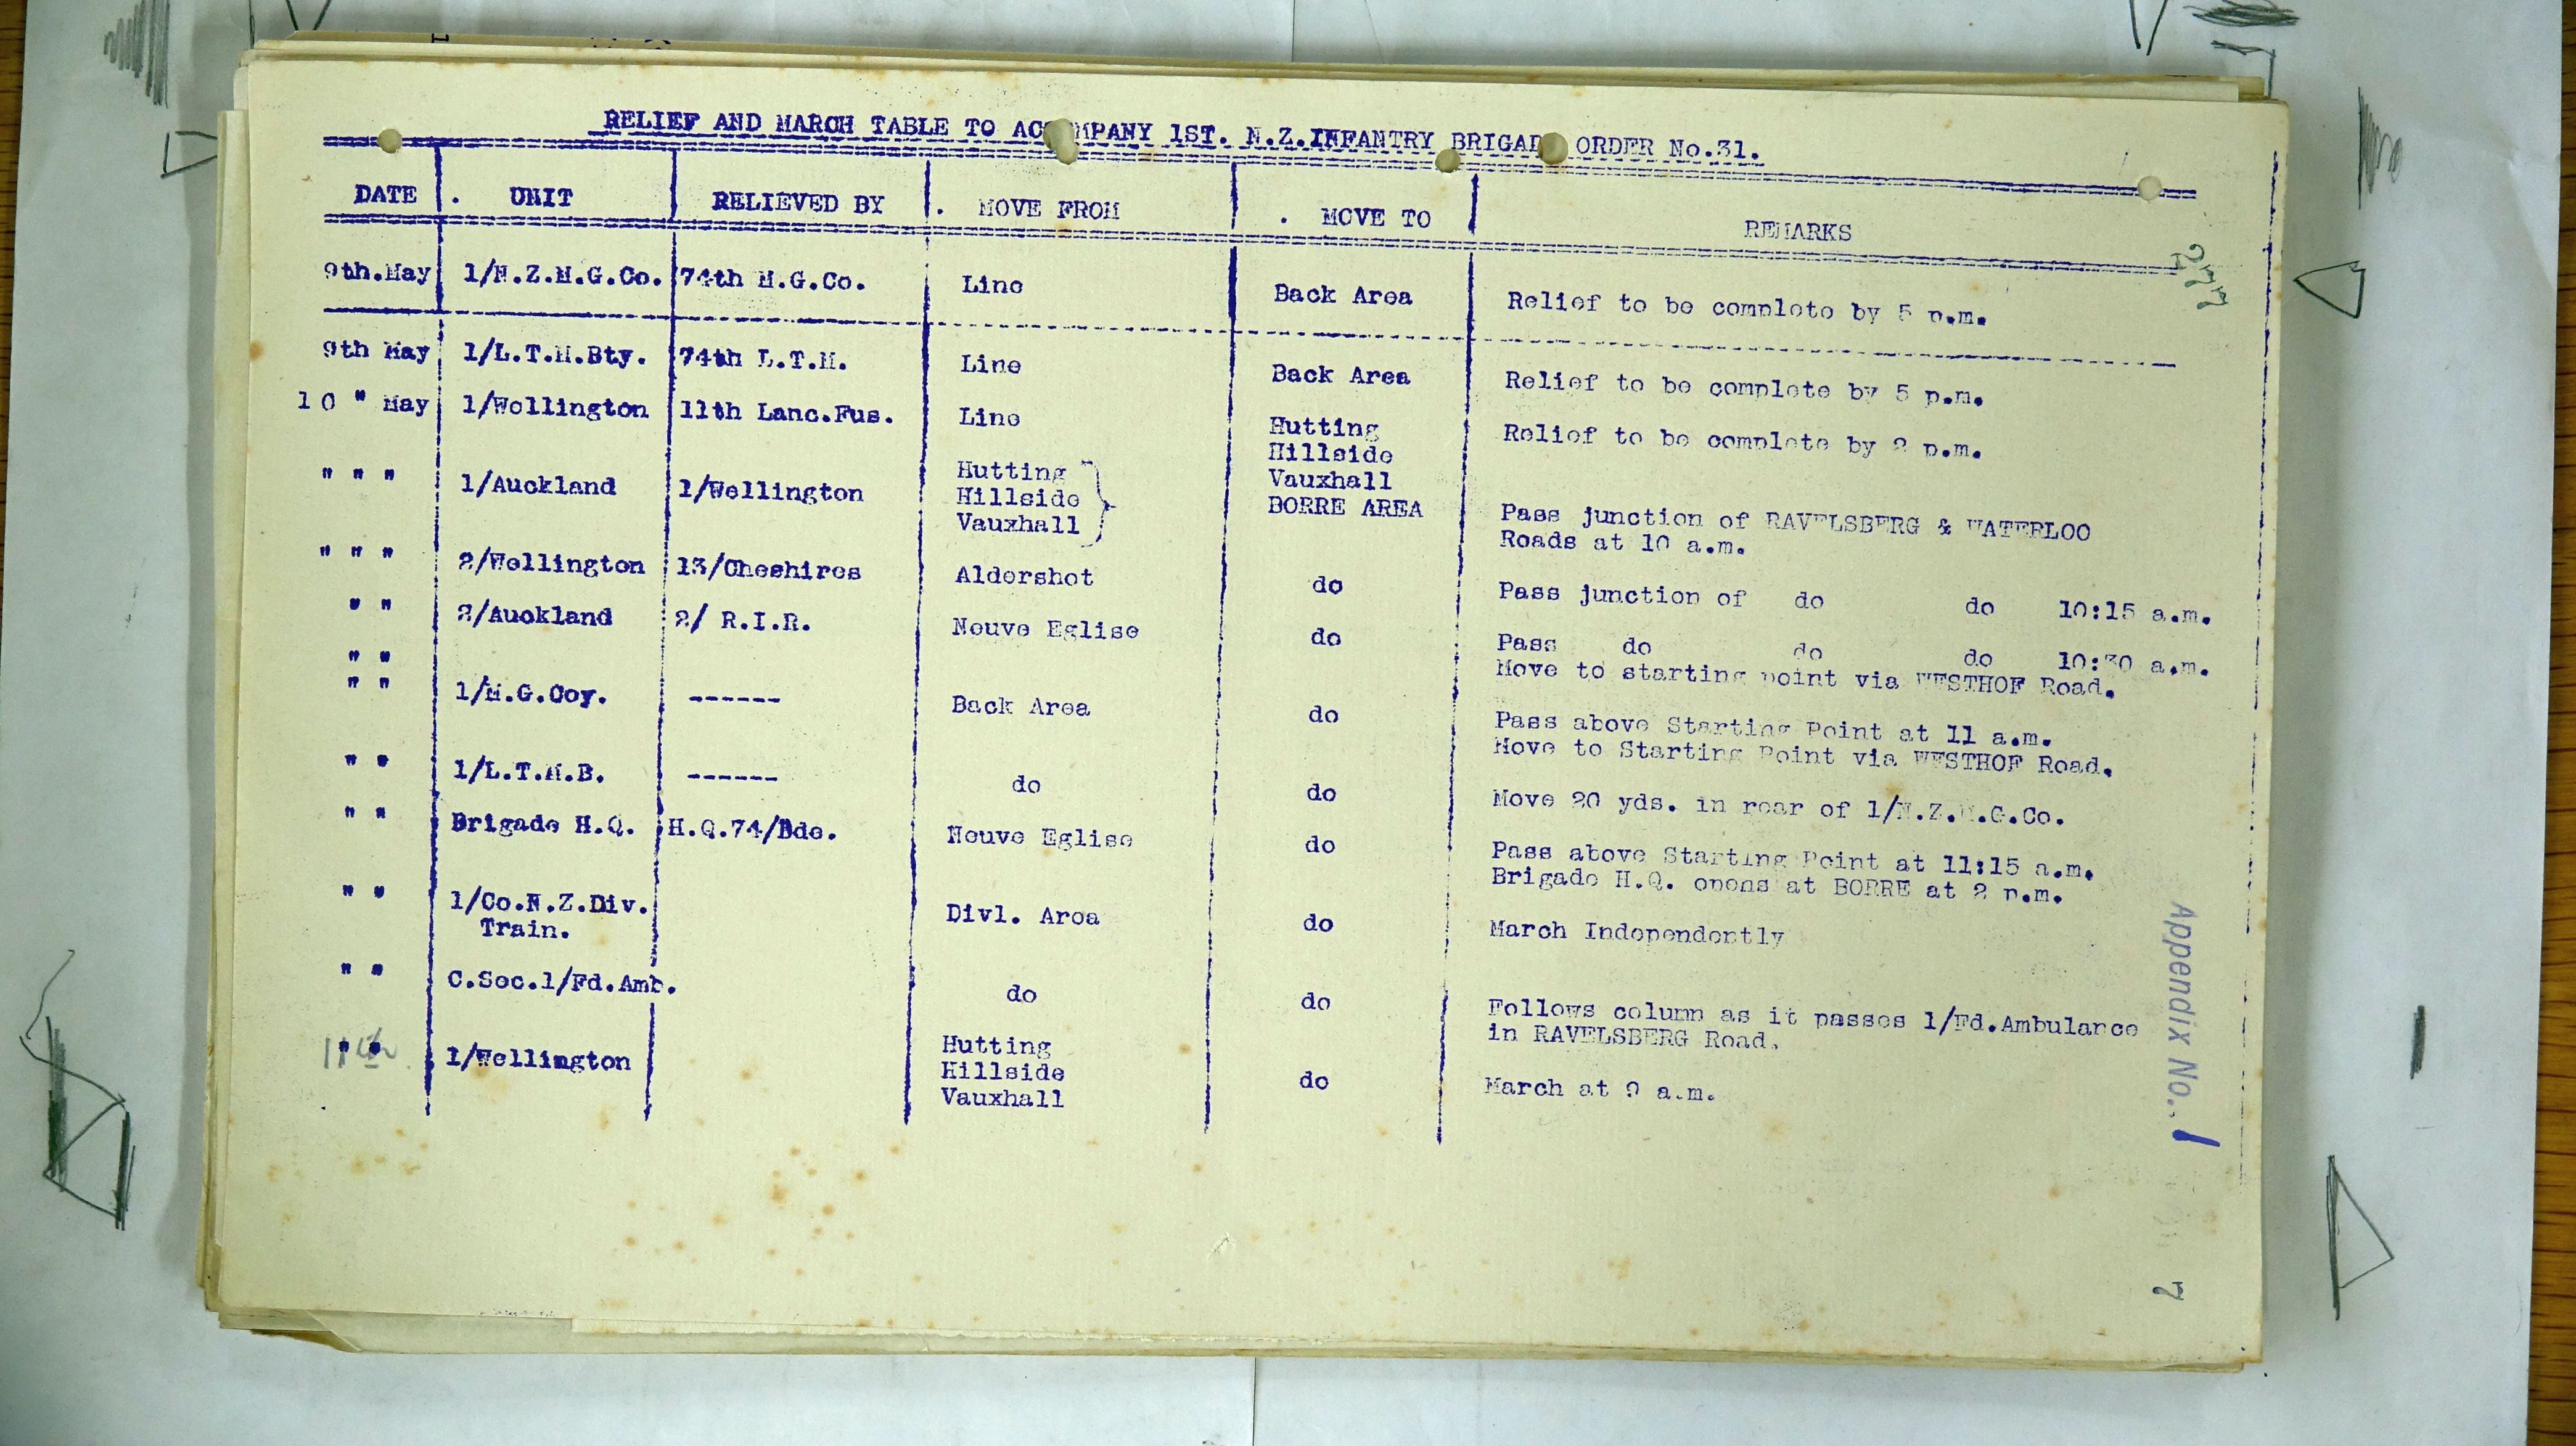 RELIEF AND MARCH TABLE TO ACCOMPANY 1ST. N.Z.INFANTRY BRIGADE ORDER No.31.
DATE . UNIT RELIEVED BY . MOVE FROM . MOVE TO REMARKS
277
9th.May 1/N.Z.M.G.Co. 74th M.G.Co. Line Back Area Relief to be complete by 5 p.m.
9th May 1/L.T.M.Bty. 74th L.T.M. Line Back Area Relief to be complete by 5 p.m.
10 " May 1/Wellington 11th Lanc.Fus. Line Hutting Relief to be complete by 2 p.m.
Hillside
Vauxhall
" " " 1/Auckland 1/Wellington Hutting BORRE AREA Pass junction of RAVELSBERG & WATERLOO
Hillside Roads at 10 a.m.
Vauxhall
" " " 2/Wellington 13/Cheshires Aldershot do Pass junction of do do 10:15 a.m.
" " 2/Auckland 2/ R.I.R. Neuve Eglise do Pass do do do 10:30 a.m.
" " Move to starting point via WESTHOF Road.
" " 1/M.G.Coy. ------ Back Area do Pass above Starting Point at 11 a.m.
Move to Starting Point via WESTHOF Road.
" " 1/L.T.M.B. ------ do do Move 20 yds. in rear of 1/N.Z.M.G.Co.
" " Brigade H.Q. H.Q.74/Bde. Neuve Eglise do Pass above Starting Point at 11:15 a.m.
Brigade H.Q. opens at BORRE at 2 p.m.
" " 1/Co.N.Z.Div. Divl. Area do March Independently
Train.
" " C.Sec.1/Fd.Amb. do do Follows column as it passes 1/Fd.Ambulance
in RAVELSBERG Road.
11th " " 1/Wellington Hutting do March at 9 a.m.
Hillside
Vauxhall
Appendix No. 1
7